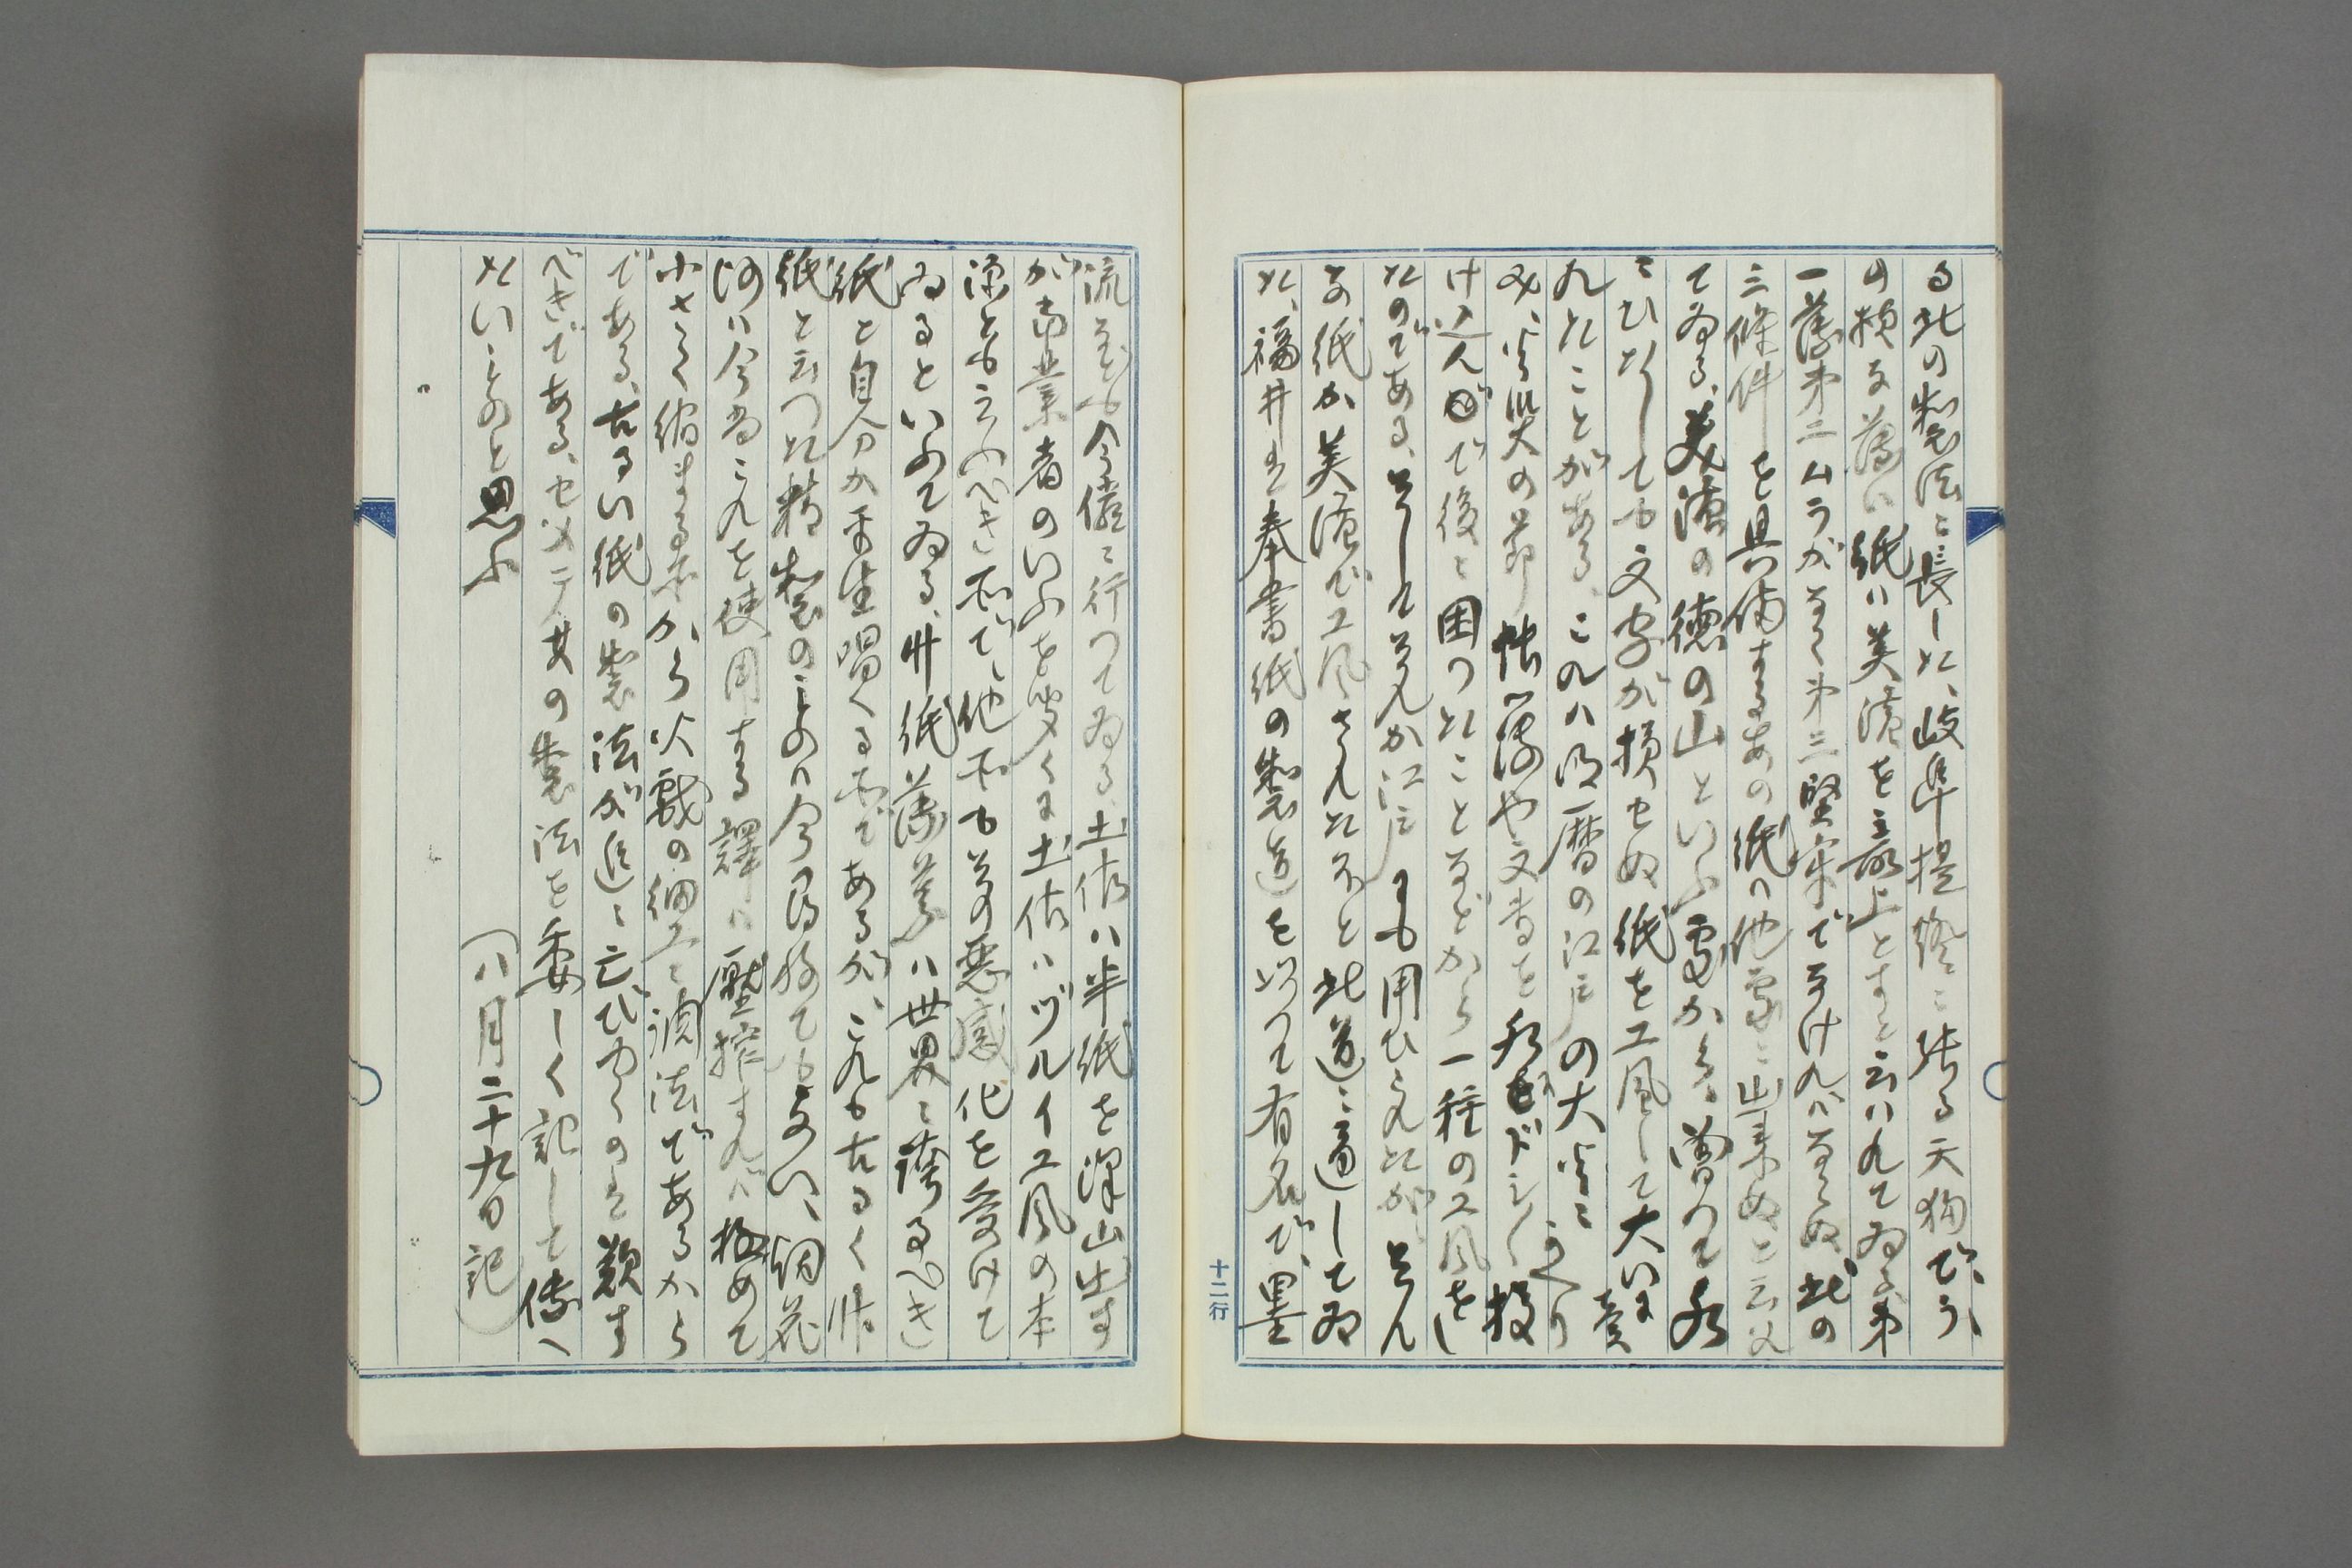 る此の製法に長じた、岐阜提燈に張る天狗でう、
の様な薄い紙は美濃を最上とすと云はれてゐる、第
一薄、第二ムラがなく、第三堅牢でなければならぬ、此の
三條件を具備するあの紙は他處に出來ぬと云ひ
てゐる、美濃の徳の山といふ處から、曽つて水
にひたしても文字が損せぬ紙を工風して大いに賣
れたことがある、これは明暦の江戸の大火に
み、火災の節帳簿や文書を水をドシドシ投
け込んで後に困つたことなどから一種の工風をし
たのである、そして其れか江戸にも用ひられたが、そん
な紙か美濃で工風されたほと此道に適してゐ
た、福井は奉書紙の製造を以つて有名で、墨
流なども今儘に行つてゐる、土佐は半紙を澤山出す
が當業者のいふを聞くに土佐はヅルイ工風の本
源とも云ふべき所で、他所も其の惡感化を受けて
ゐるといふてゐる、卅紙薄葉は世界に誇るべき
紙と自分か平生唱へる所であるが、これも古るく
紙と云つた精製のものは今得ても ない、
河は今尚これを使用する譯は壓搾すれば極めて
小さく縮まる所から火藥の細工に 法であるから
である、古るい紙の製法が追に亡びゆくのは歎す
べきである、セメテ其の製法を委しく記して傳へ
たいものと思ふ
(八月二十九日記)
十二行